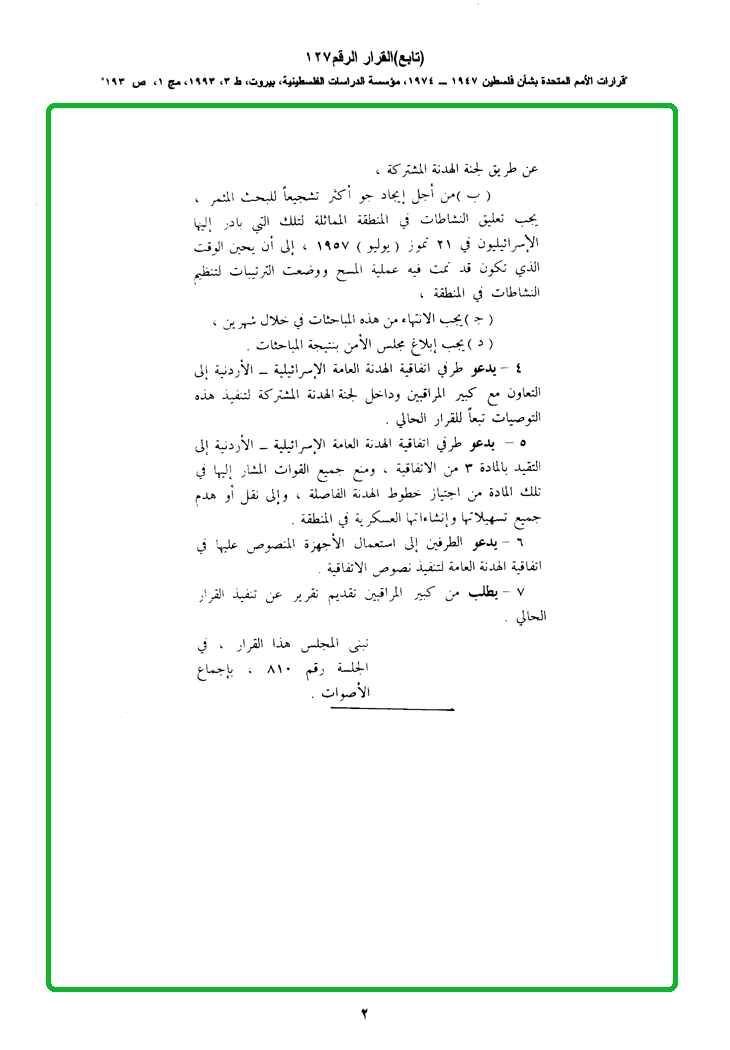 (تابع)القرار الرقم١٢٧
"قرارات الأمم المتحدة بشأن فلسطين ١٩٤٧ ــ ١٩٧٤، مؤسسة الدراسات الفلسطينية، بيروت، ط ٣، ١٩٩٣، مج ١، ص ١٩٣"
عن طريق لجنة الهدنة المشتركة ،
( ب )من أجل إيجاد جو أكثر تشجيعاً للبحث المثمر ،
يجب تعليق النشاطات في المنطقة المماثلة لتلك التي بادر إليها
الإسرائيليون في ٢١ تموز ( يوليو ) ١٩٥٧ ، إلى أن يحين الوقت
الذي تكون قد تمت فيه عملية المسح ووضعت الترتيبات لتنظيم
النشاطات في المنطقة ،
( ج )يجب الانتهاء من هذه المباحثات في خلال شهرين ،
( د )يجب إبلاغ مجلس الأمن بنتيجة المباحثات .
٤ – يدعو طرفي اتفاقية الهدنة العامة الإسرائيلية ــ الأردنية إلى
التعاون مع كبير المراقبين وداخل لجنة الهدنة المشتركة لتنفيذ هذه
التوصيات تبعاً للقرار الحالي .
٥ – يدعو طرفي اتفاقية الهدنة العامة الإسرائيلية ــ الأردنية إلى
التقيد بالمادة ٣ من الاتفاقية ، ومنع جميع القوات المشار إليها في
تلك المادة من اجتياز خطوط الهدنة الفاصلة ، وإلى نقل أو هدم
جميع تسهيلاتها وإنشاءاتها العسكرية في المنطقة .
٦ – يدعو الطرفين إلى استعمال الأجهزة المنصوص عليها في
اتفاقية الهدنة العامة لتنفيذ نصوص الاتفاقية .
٧ – يطلب من كبير المراقبين تقديم تقرير عن تنفيذ القرار
الحالي .
تبنى المجلس هذا القرار ، في
الجلسة رقم ٨١٠ ، بإجماع
الأصوات .
٢